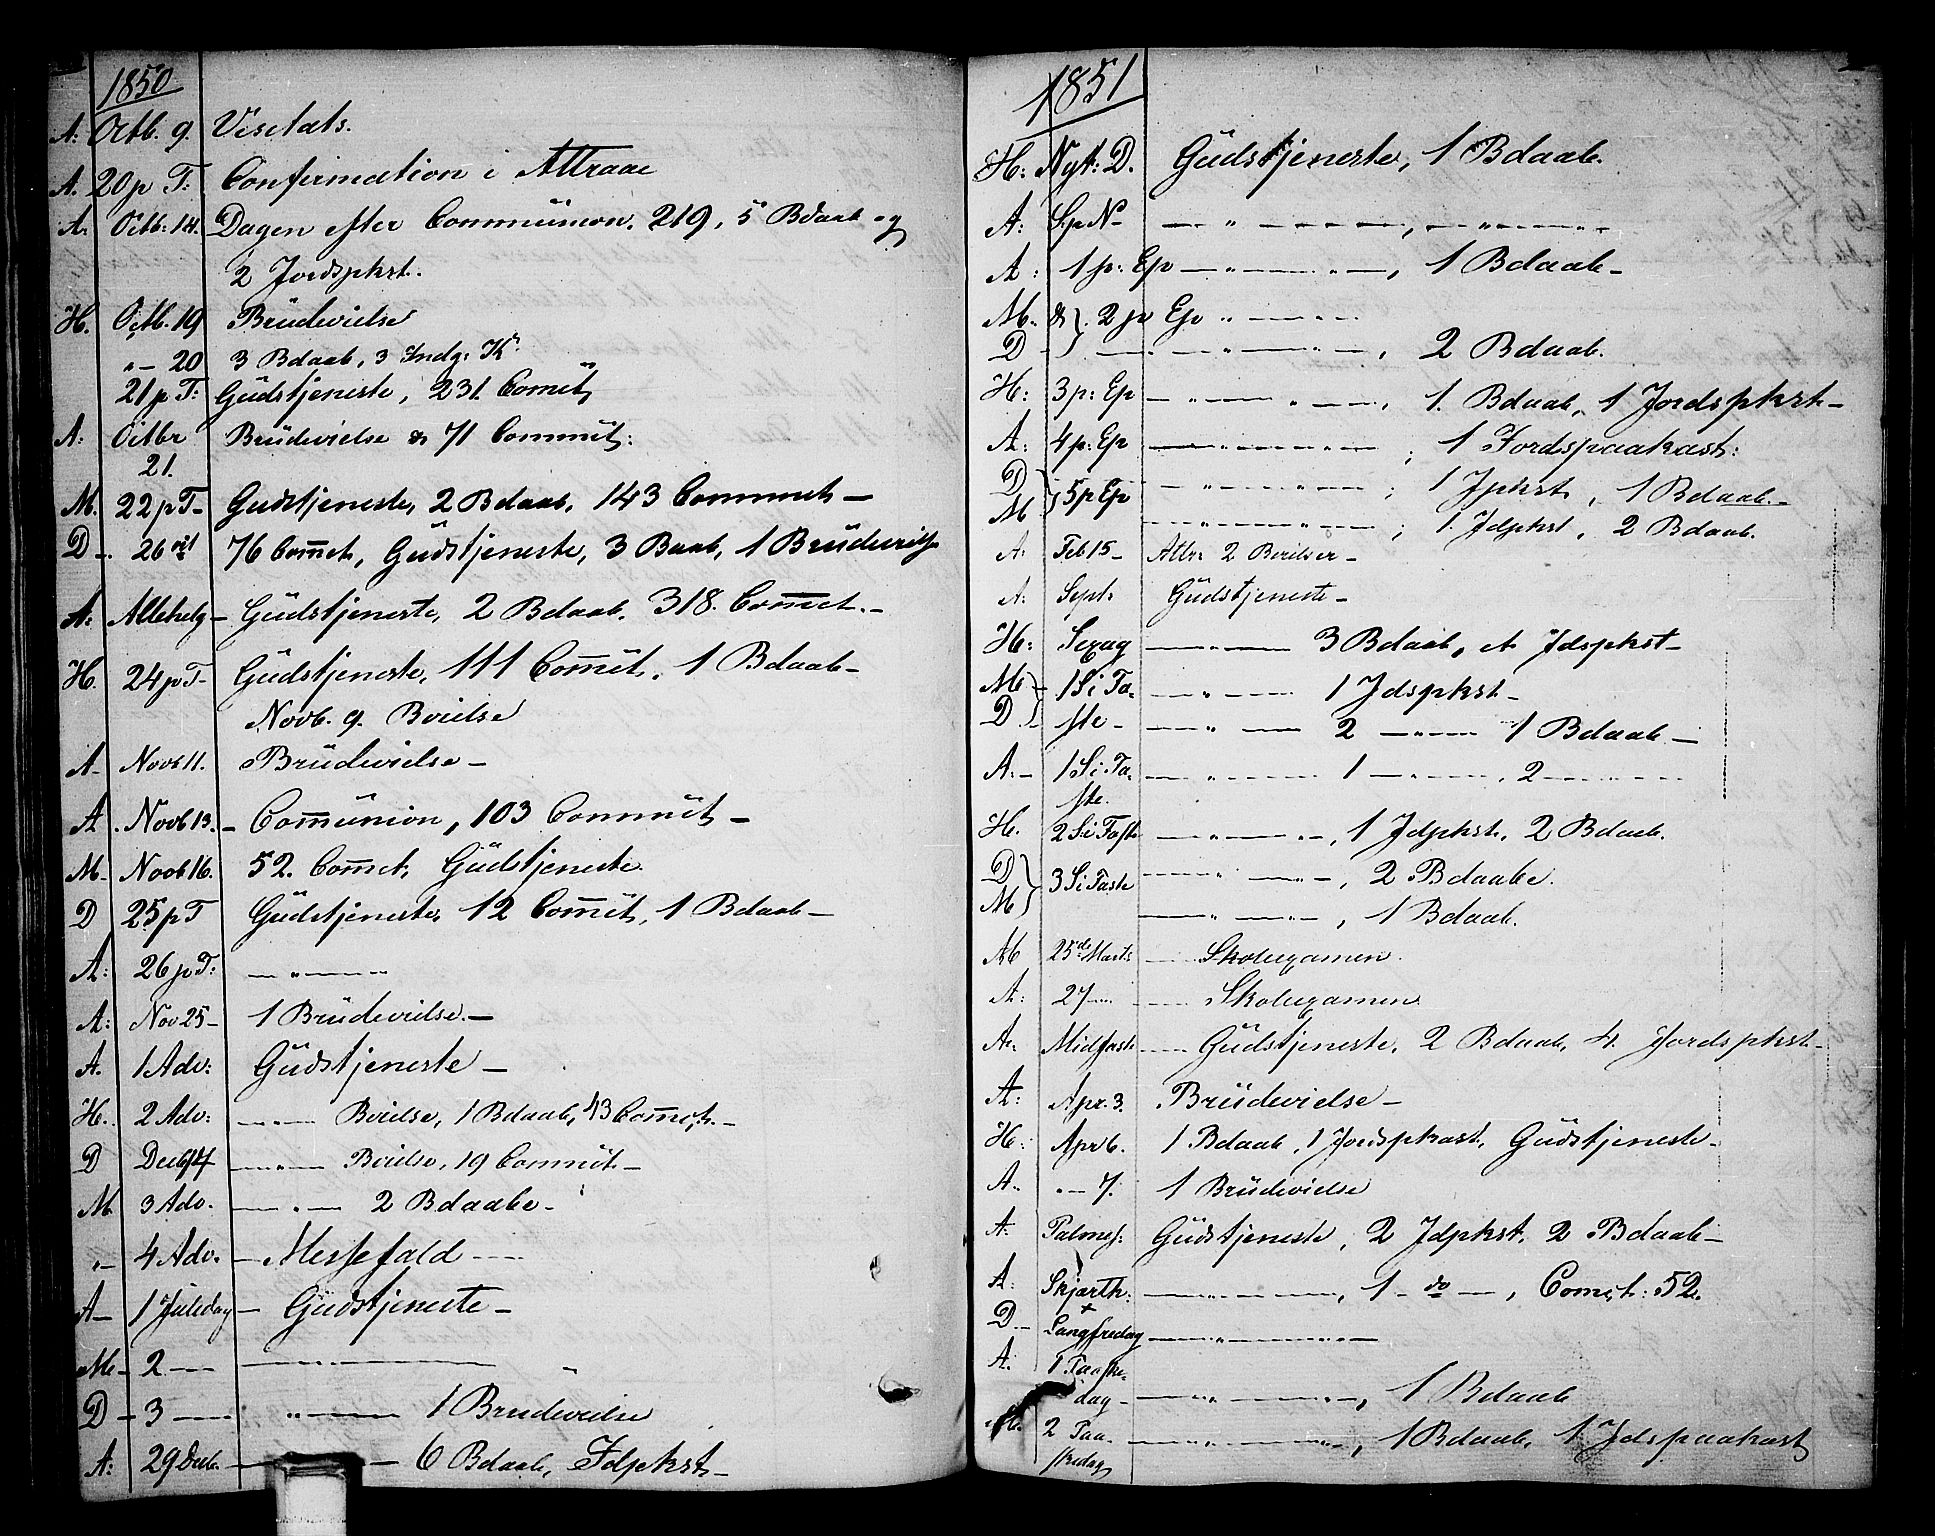 1850
A: Octb. 9. Visitats.
A. 20 p T: Confirmation i Attraae
A. Octb: 14. Dagen efter Communion. 219, 5 Bdaab og
2 Jordspkst.
H. Octb. 19 Brüdevielse
" — 20 3 Bdaab, 3 Indg: K
21 p T: Güdstjeneste, 231 Com̅üt
A: Octbr Brüdevielse & 71 Commüt:
21.
M. 22 p T — Gudstjeneste, 2 Bdaab, 143 Commut —
D — 26 oct 76 Com̅et, Güdstjeneste, 3 Baab, 1 Brüdevielse
A: Allehelg — Güdstjeneste, 2 Bdaab. 318. Com̅et. —
H. 24 p T — Güdstjeneste, 111 Com̅üt. 1 Bdaab —
Novb. 9. Bvielse
A — Novb 11. Brüdevielse —
A. Novb 13. — Com̅ünion, 103 Commüt —
M — Novb 16. 52. Com̅et, Güdstjeneste.
D 25 p T Güdstjeneste, 12 Com̅üt, 1 Bdaab —
A: 26 p T: — " — —
A: Nov 25 — 1 Brüdevielse. —
A. 1 Adv: Güdstjeneste —
H. 2 Adv: — " — Bvielse, 1 Bdaab, 43 Com̅et. —
D Decb 14 — " — Bvielse, 19 Commüt —
M. 3 Adv. — " — 2 Bdaabe —
" — 4 Adv. — Messefald —
A — 1 Juledag — Gudstjeneste —
M — 2 — — — —
D — 3 — " — 1 Brudevielse
A: 29 Decb. — — 6 Bdaab, Jdpkst —
1851
H: Nyt: D. Güdstjeneste, 1 Bdaab.
A: Sp N — — " — — — , — " — —
A: 1 p: Ep — " — — , 1 Bdaab —
M. & } 2 p Ep " — —
D — } — " — — , 2 Bdaab.
H: 3 p: Ep — — " — , 1. Bdaab, 1 Jordspkst —
A: 4 p: Ep — — " — ; 1 Jordspaakast:
D } 5 p Ep — " — — ; 1 Jpkst, 1 Bdaab. —
M } — — " — — ; 1 Jdpkst, 2 Bdaab.
A: Feb 15 — Attr: 2 Bvielser —
A: Sept: Güdstjeneste —
H: Sexag — " — 3 Bdaab, et Jdspkst —
M } 1 S i Fa- — " — 1 Jdspkst —
D } ste — — " — 2 — " — 1 Bdaab —
A: — 1 S. i. Fa- — " — — 1 — " — , 2 — " —
ste.
H. 2 S i Faste — " — — , 1 Jdpkst, 2 Bdaab.
D } 3 S i Faste — " — — , 2 Bdaabe.
M } — " — — , 1 Bdaab.
M 25de Marts — Skolexamen.
A: 27 — — Skolexamen
A: Midfaste — Güdstjeneste, 2 Bdaab, 4. Jordspkst —
A: Apr. 3. Brüdevielse —
H: Apr 6. 1 Bdaab, 1 Jordspkast, Güdstjeneste —
A. " — 7. 1 Brüdevielse
A: Palmes: Güdstjeneste, 2 Jdpkst, 2 Bdaab —
A: Skjærth: — " — — , 1 — do — , Comet: 52.
D — Langfredag — " — —
A. 1 Paaske-
dag — — " — — , 1 Bdaab
2 Paa- — " — — , 1 Bdaab, 1 Jdspaakast
skedag